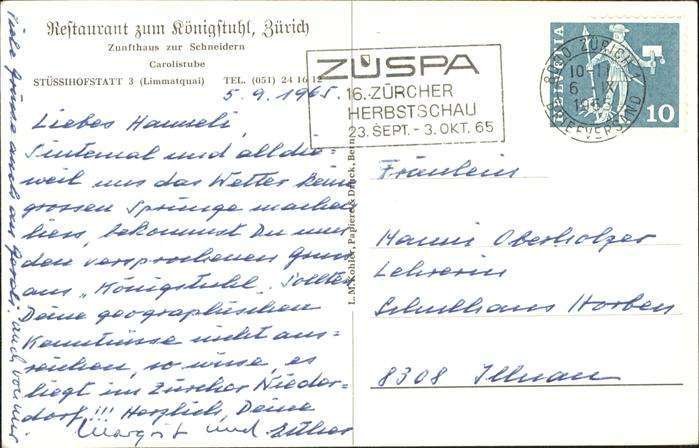 Restaurant zum Königstuhl, Zürich
Zunfthaus zur Schneidern
Carolistube
STÜSSIHOFSTATT 3 (Limmatquai) TEL. (051) 24 16 12
5. 9. 1965.
Liebes Hanneli,
Sintemal und alldie=
weil uns das Wetter keine
grossen Sprünge machen
liess, bekommst Du nur
den versprochenen Gruss
aus „Königstuhl". Sollten
Deine geographischen
Kenntnisse nicht aus=
reichen, so wisse, es
liegt im Zürcher Nieder=
dorf!!! Herzlich, Deine
Margrit und Esther
Viele Grüsse auch an
auch von mir
L. M. Kohler, Papiere & Druck, Bern
ZÜSPA
16. ZÜRCHER
HERBSTSCHAU
23. SEPT. - 3. OKT. 65
8000 ZÜRICH 1
6. IX
BRIEFVERSAND
HELVETIA
10
Fräulein
Hanni Oberholzer
Lehrerin
Schulhaus Horben
8308 Illnau